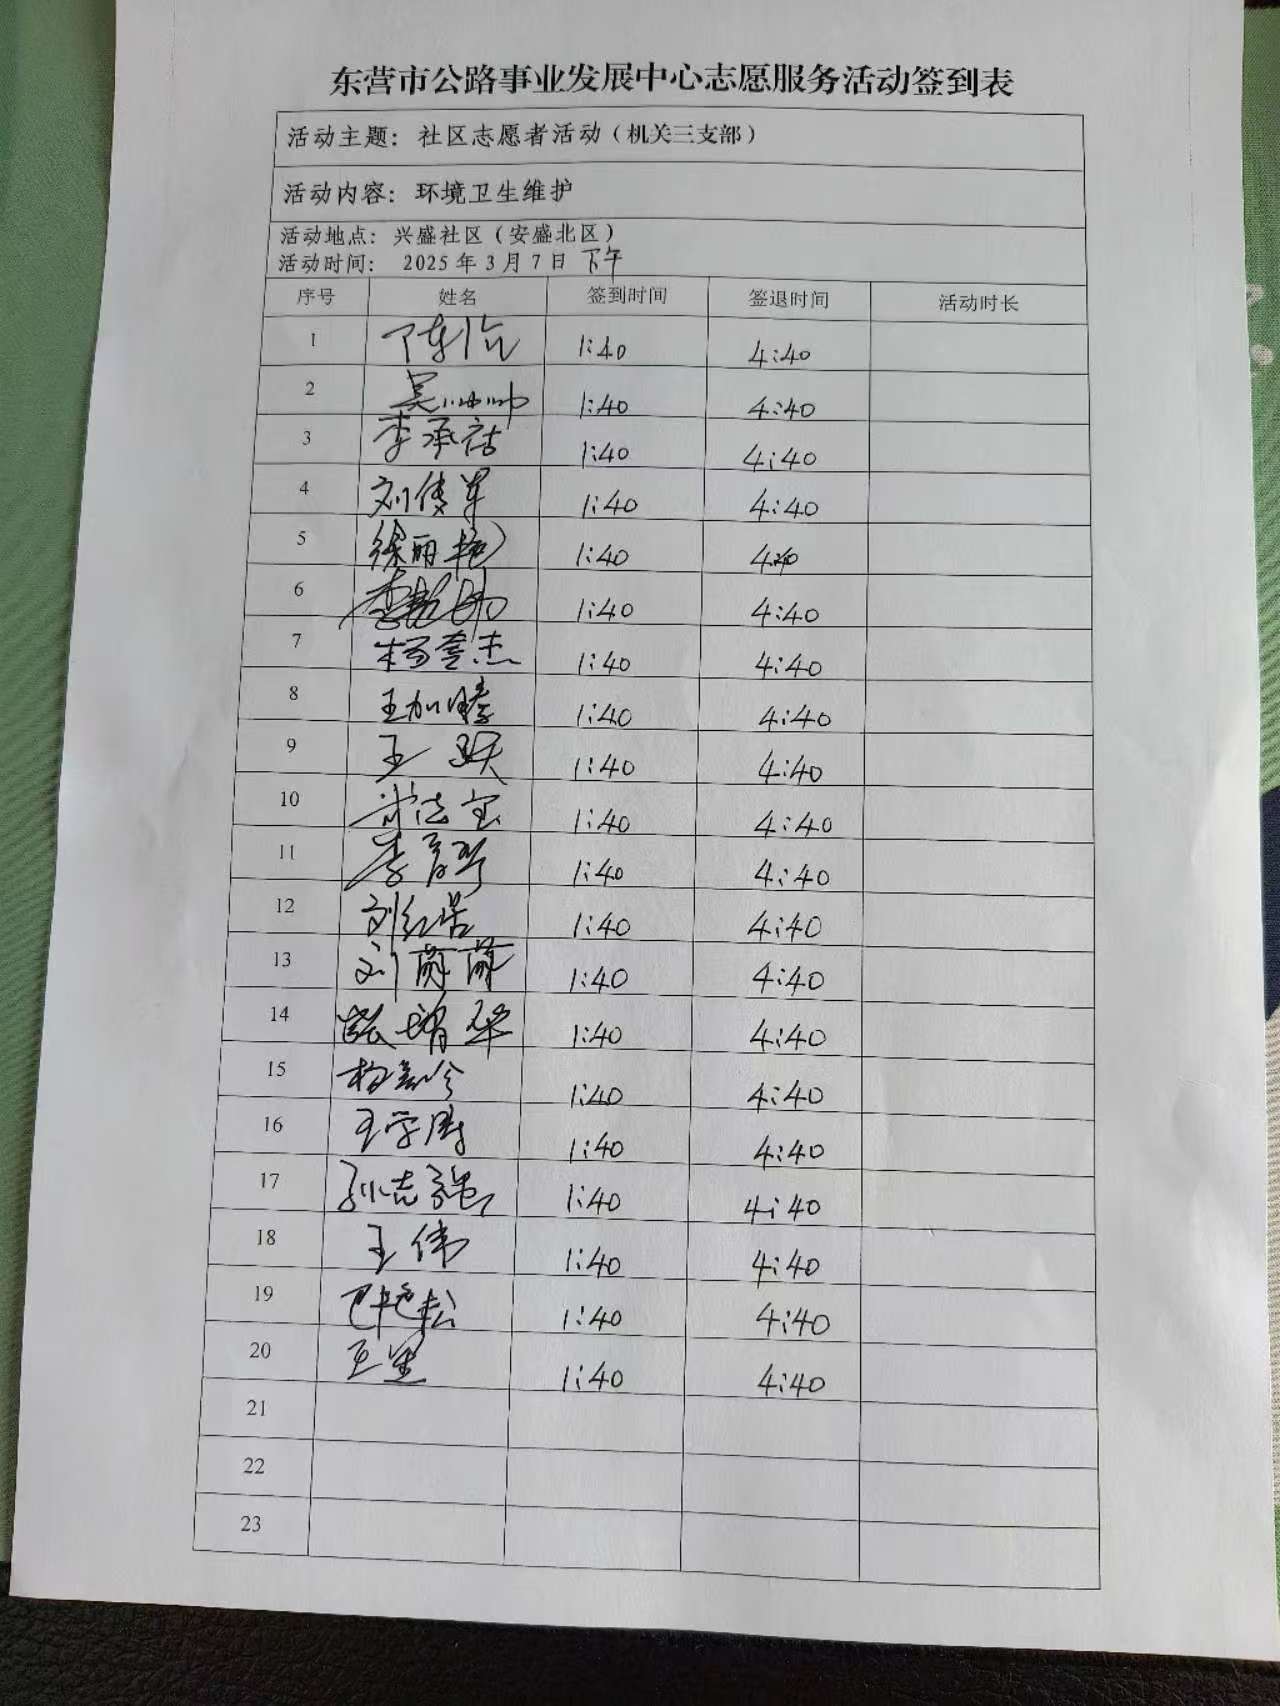 东营市公路事业发展中心志愿服务活动签到表
活动主题：社区志愿者活动（机关三支部）
活动内容：环境卫生维护
活动地点：兴盛社区（安盛北区）
活动时间： 2025年3月7日 下午
序号 姓名 签到时间 签退时间 活动时长
1 1:40 4:40
2 吴帅帅 1:40 4:40
3 李承祜 1:40 4:40
4 刘传军 1:40 4:40
5 徐丽艳 1:40 4:40
6 1:40 4:40
7 1:40 4:40
8 1:40 4:40
9 王跃 1:40 4:40
10 1:40 4:40
11 1:40 4:40
12 1:40 4:40
13 1:40 4:40
14 1:40 4:40
15 1:40 4:40
16 1:40 4:40
17 孙志强 1:40 4:40
18 王伟 1:40 4:40
19 巴艳松 1:40 4:40
20 1:40 4:40
21
22
23